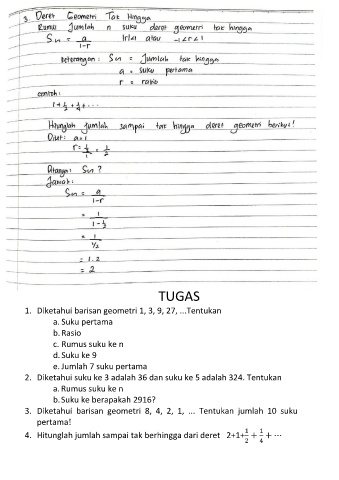 3. Deret Geometri Tak Hingga
Rumus Jumlah n suku deret geometri tak hingga
S∞ = a/1-r  |r|<1 atau -1<r<1
keterangan : S∞ = Jumlah tak hingga
a = suku pertama
r = rasio
contoh :
1+1/2+1/4+...
Hitunglah jumlah sampai tak hingga deret geometri berikut!
Diket : a=1
r = 1/2 / 1 = 1/2
Ditanya : S∞ ?
Jawab :
S∞ = a/1-r
= 1/1-1/2
= 1/1/2
= 1.2
= 2
TUGAS
1. Diketahui barisan geometri 1, 3, 9, 27, ...Tentukan
a. Suku pertama
b. Rasio
c. Rumus suku ke n
d. Suku ke 9
e. Jumlah 7 suku pertama
2. Diketahui suku ke 3 adalah 36 dan suku ke 5 adalah 324. Tentukan
a. Rumus suku ke n
b. Suku ke berapakah 2916?
3. Diketahui barisan geometri 8, 4, 2, 1, ... Tentukan jumlah 10 suku
pertama!
4. Hitunglah jumlah sampai tak berhingga dari deret 2+1+1/2+1/4+⋯